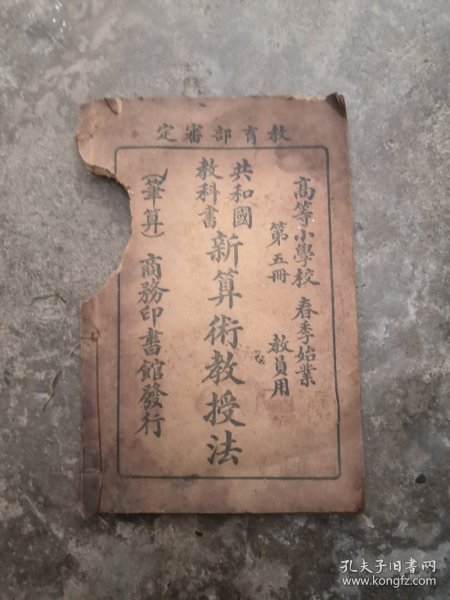 教育部審定
高等小學校 春季始業
第五冊 教員用
共和國
教科書
新算術教授法
（筆算） 商務印書館發行
孔夫子旧书网
www.kongfz.com